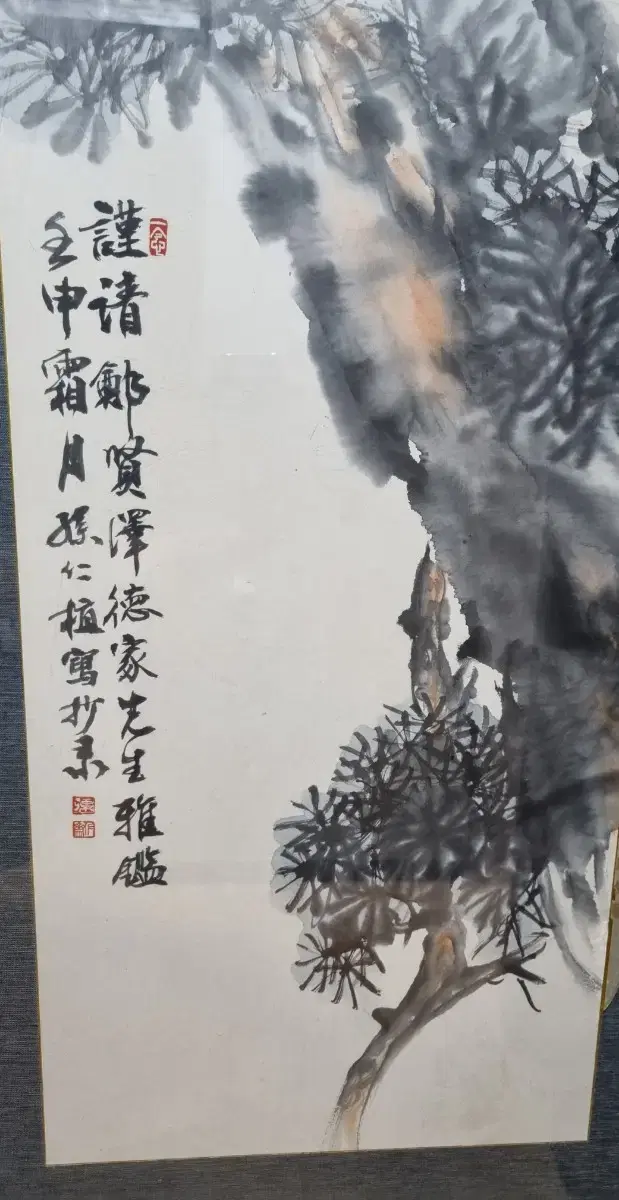 一念
謹請鄭賢澤德家先生雅鑑
壬申霜月孫仁植寫